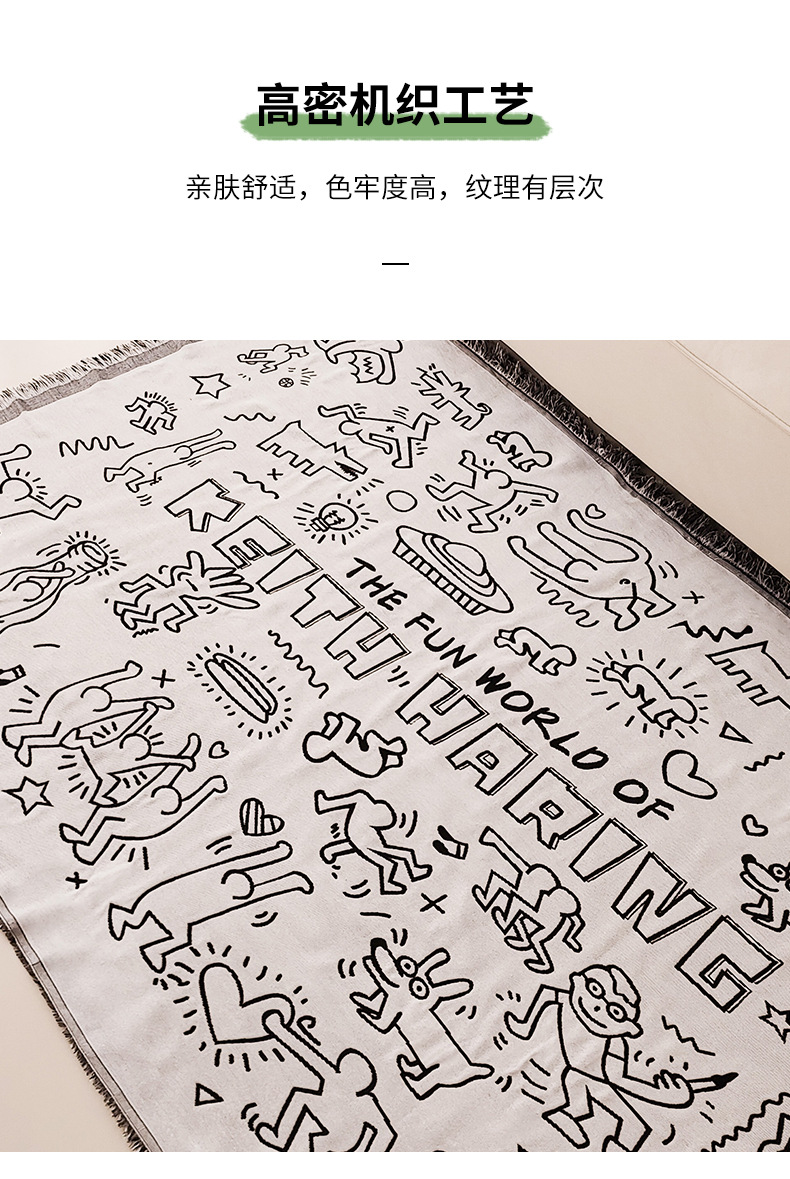 高密机织工艺
亲肤舒适，色牢度高，纹理有层次
THE FUN WORLD OF
KEITH HARING